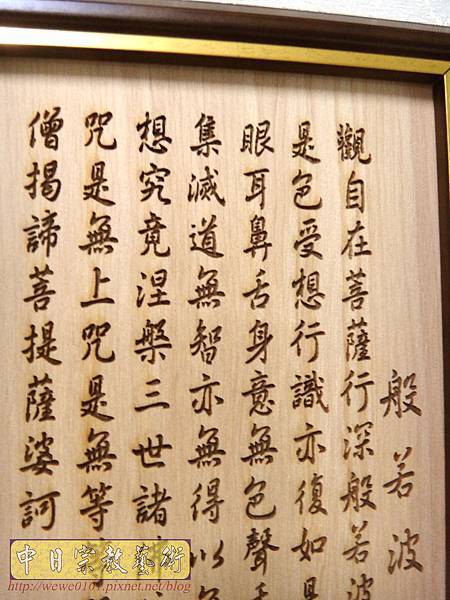 般若波
觀自在菩薩行深般若波
是色受想行識亦復如是
眼耳鼻舌身意無色聲香
集滅道無智亦無得以無
想究竟涅槃三世諸
咒是無上咒是無等
僧揭諦菩提薩婆訶
中日宗教藝術
http://wewe0101.pixnet.net/blog